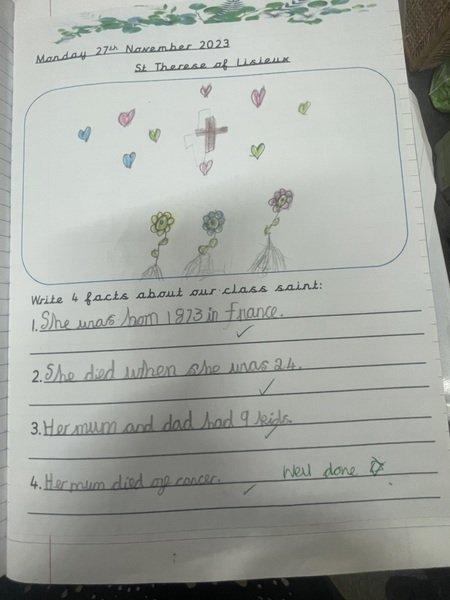 Monday 27th November 2023
St Therese of Lisieux
Write 4 facts about our class saint:
1. She was born 1973 in france.
2. She died when she was 24.
3. Her mum and dad had 9 kids.
4. Her mum died of cancer.
Well done